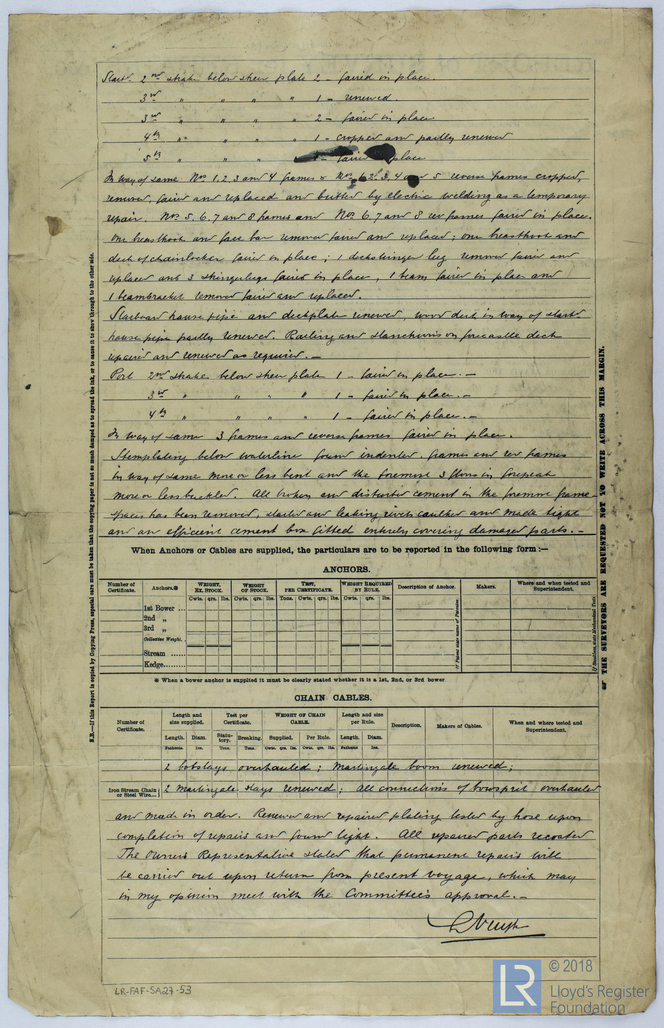 Starbd 2nd strake below sheer plate 2 - faired in place.
3rd " " " " 1 - renewed.
3rd " " " " 2 - faired in place
4th " " " " 1 - cropped and partly renewed
5th " " " " faired place
In way of same Nos 1, 2, 3 and 4 frames & Nos 2, 3, 4 and 5 reverse frames cropped,
removed, faired and replaced and butted by electric welding as a temporary
repair. Nos 5, 6, 7 and 8 frames and Nos 6, 7, and 8 rev frames faired in place.
One breasthook and face bar removed faired and replaced; one breasthook and
deck of chainlocker faired in place; 1 deckstringer leg removed faired and
replaced and 3 stringerlegs faired in place, 1 beam faired in place and
1 beambracket removed faired and replaced.
Starboard hawse pipe and deckplate renewed, wood deck in way of starbd
hawse pipe partly renewed. Railing and stanchions on forecastle deck
repaired and renewed as required. -
Port 2nd strake below sheer plate 1 - faired in place. -
3rd " " " " 1 - faired in place. -
4th " " " " 1 - faired in place. -
In way of same 3 frames and reverse frames faired in place.
Stemplating below waterline found indented, frames and rev frames
in way of same more or less bent and the foremost 3 floors in forepeak
more or less buckled. All broken and disturbed cement in the foremost frame
spaces has been removed, started and leaking rivets caulked and made tight
and an efficient cement box fitted entirely covering damaged parts. -
When Anchors or Cables are supplied, the particulars are to be reported in the following form:—
ANCHORS.
Number of Certificate. Anchors.* WEIGHT, EX. STOCK. WEIGHT OF STOCK. TEST, PER CERTIFICATE. WEIGHT REQUIRED BY RULE. Description of Anchor. Makers. Where and when tested and Superintendent.
Cwts. qrs. lbs. Cwts. qrs. lbs. Tons. Cwts. qrs. lbs. Cwts. qrs. lbs.
1st Bower ..
2nd "
3rd "
Collective Weight.
Stream ....
Kedge......
* When a bower anchor is supplied it must be clearly stated whether it is a 1st, 2nd, or 3rd bower
CHAIN CABLES.
Number of Certificate. Length and size supplied. Test per Certificate. WEIGHT OF CHAIN CABLE. Length and size per Rule. Description. Makers of Cables. When and where tested and Superintendent.
Length. Diam. Statutory. Breaking. Supplied. Per Rule. Length. Diam.
Fathoms. Ins. Tons. Tons. Cwts. qrs. lbs. Cwts. qrs. lbs. Fathoms. Ins.
2 bobstays overhauled; Martingale boom renewed;
Iron Stream Chain or Steel Wire...
2 Martingale stays renewed; All connections of bowsprit overhauled
and made in order. Renewed and repaired plating tested by hose upon
completion of repairs and found tight. All repaired parts recoated
The Owners Representative stated that permanent repairs will
be carried out upon return from present voyage, which may
in my opinion meet with the Committee's approval. -
LR-FAF-SA27-53
N.B.—If this Report is copied by Copying Press, especial care must be taken that the copying paper is not so much damped as to spread the ink, or to cause it to show through to the other side.
THE SURVEYORS ARE REQUESTED NOT TO WRITE ACROSS THIS MARGIN.
LR
© 2018
Lloyd's Register
Foundation